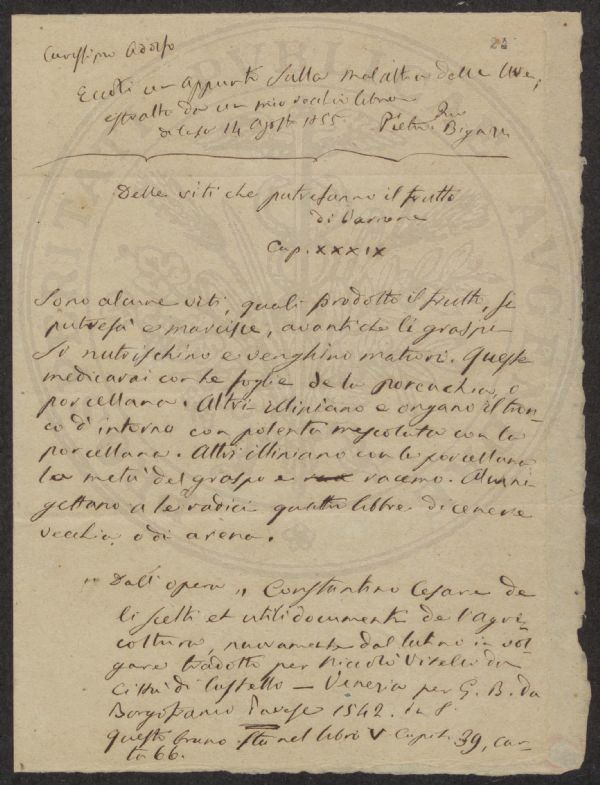 28
Carissimo Adolfo
Eccoti un appunto sulla malattia delle Uve,
estratto da un mio vecchio libro
di Casa 14 Agosto 1855. Tuo
Pietro Bigazzi
Delle viti che putrefanno il frutto
di Varrone
Cap. XXXIX
Sono alcune viti, quali prodotto il frutto, si
putrefà e marcisce, avanti che li graspi
si nutrischino e venghino maturi. Queste
medicarai con le foglie de la porcachia, o
porcellana. Altri illiniano e ongano il tron-
co d'intorno con polenta mescolata con la
porcellana. Altri illiniano con la porcellana
la metà del graspo e racemo. Alcuni
gettano a le radici quattro libbre di cenere
vecchia, o di arena.
" Dall'opera „ Constantino Cesare de
li scelti et utili documenti de l'agri-
coltura, nuovamente dal latino in vol-
gare tradotto per Niccolò Vitelli da
Città di Castello — Venezia per G. B. da
Borgofranco Pavese 1542. in 8.
questo brano sta nel libro V Capit. 39, car-
ta 66.